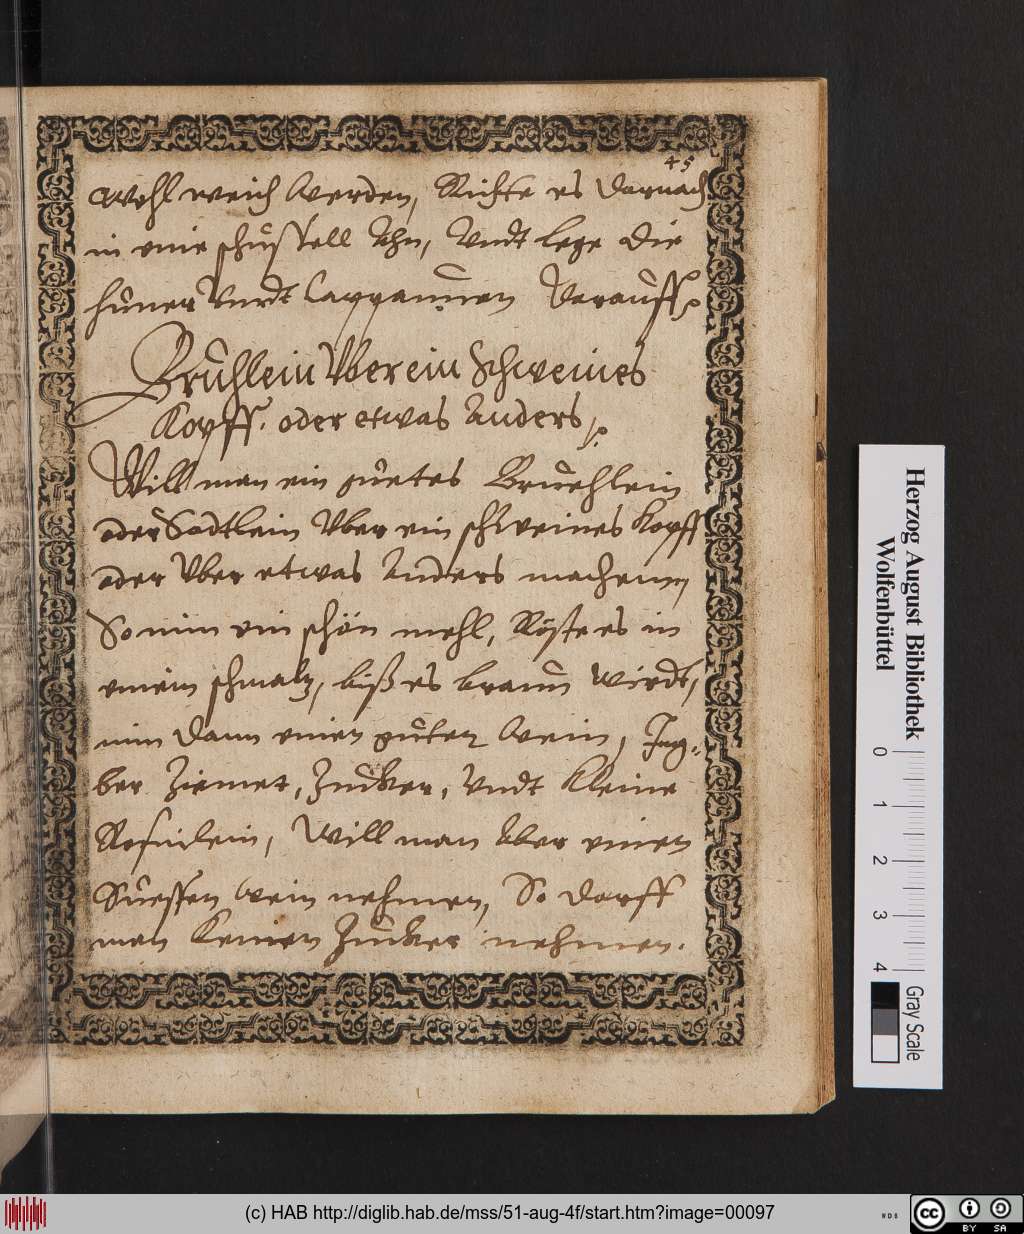 45
wohl weich werden, Richte es darnach
in eine schüssell Ahn, Undt lege die
hüner Undt Cappaunen darauff.
Brühlein Uber ein Schweines
Kopff. oder etwas Anders.
Will man ein guetes Bruehlein
oder Sodtlein Uber ein schweines Kopff
oder Uber etwas Anders machenn,
So nim ein schön mehl, Röste es in
einem schmaltz, biß es braun wirdt,
nim dann einen guten wein, Ing-
ber Ziemet, Zucker, Undt Kleine
Rosinlein, Will man Aber einen
Süessen wein nehmen, So darff
man Keinen Zucker nehmen.
Herzog August Bibliothek
Wolfenbüttel
0 1 2 3 4
Gray Scale
(c) HAB http://diglib.hab.de/mss/51-aug-4f/start.htm?image=00097
WDB
cc BY SA